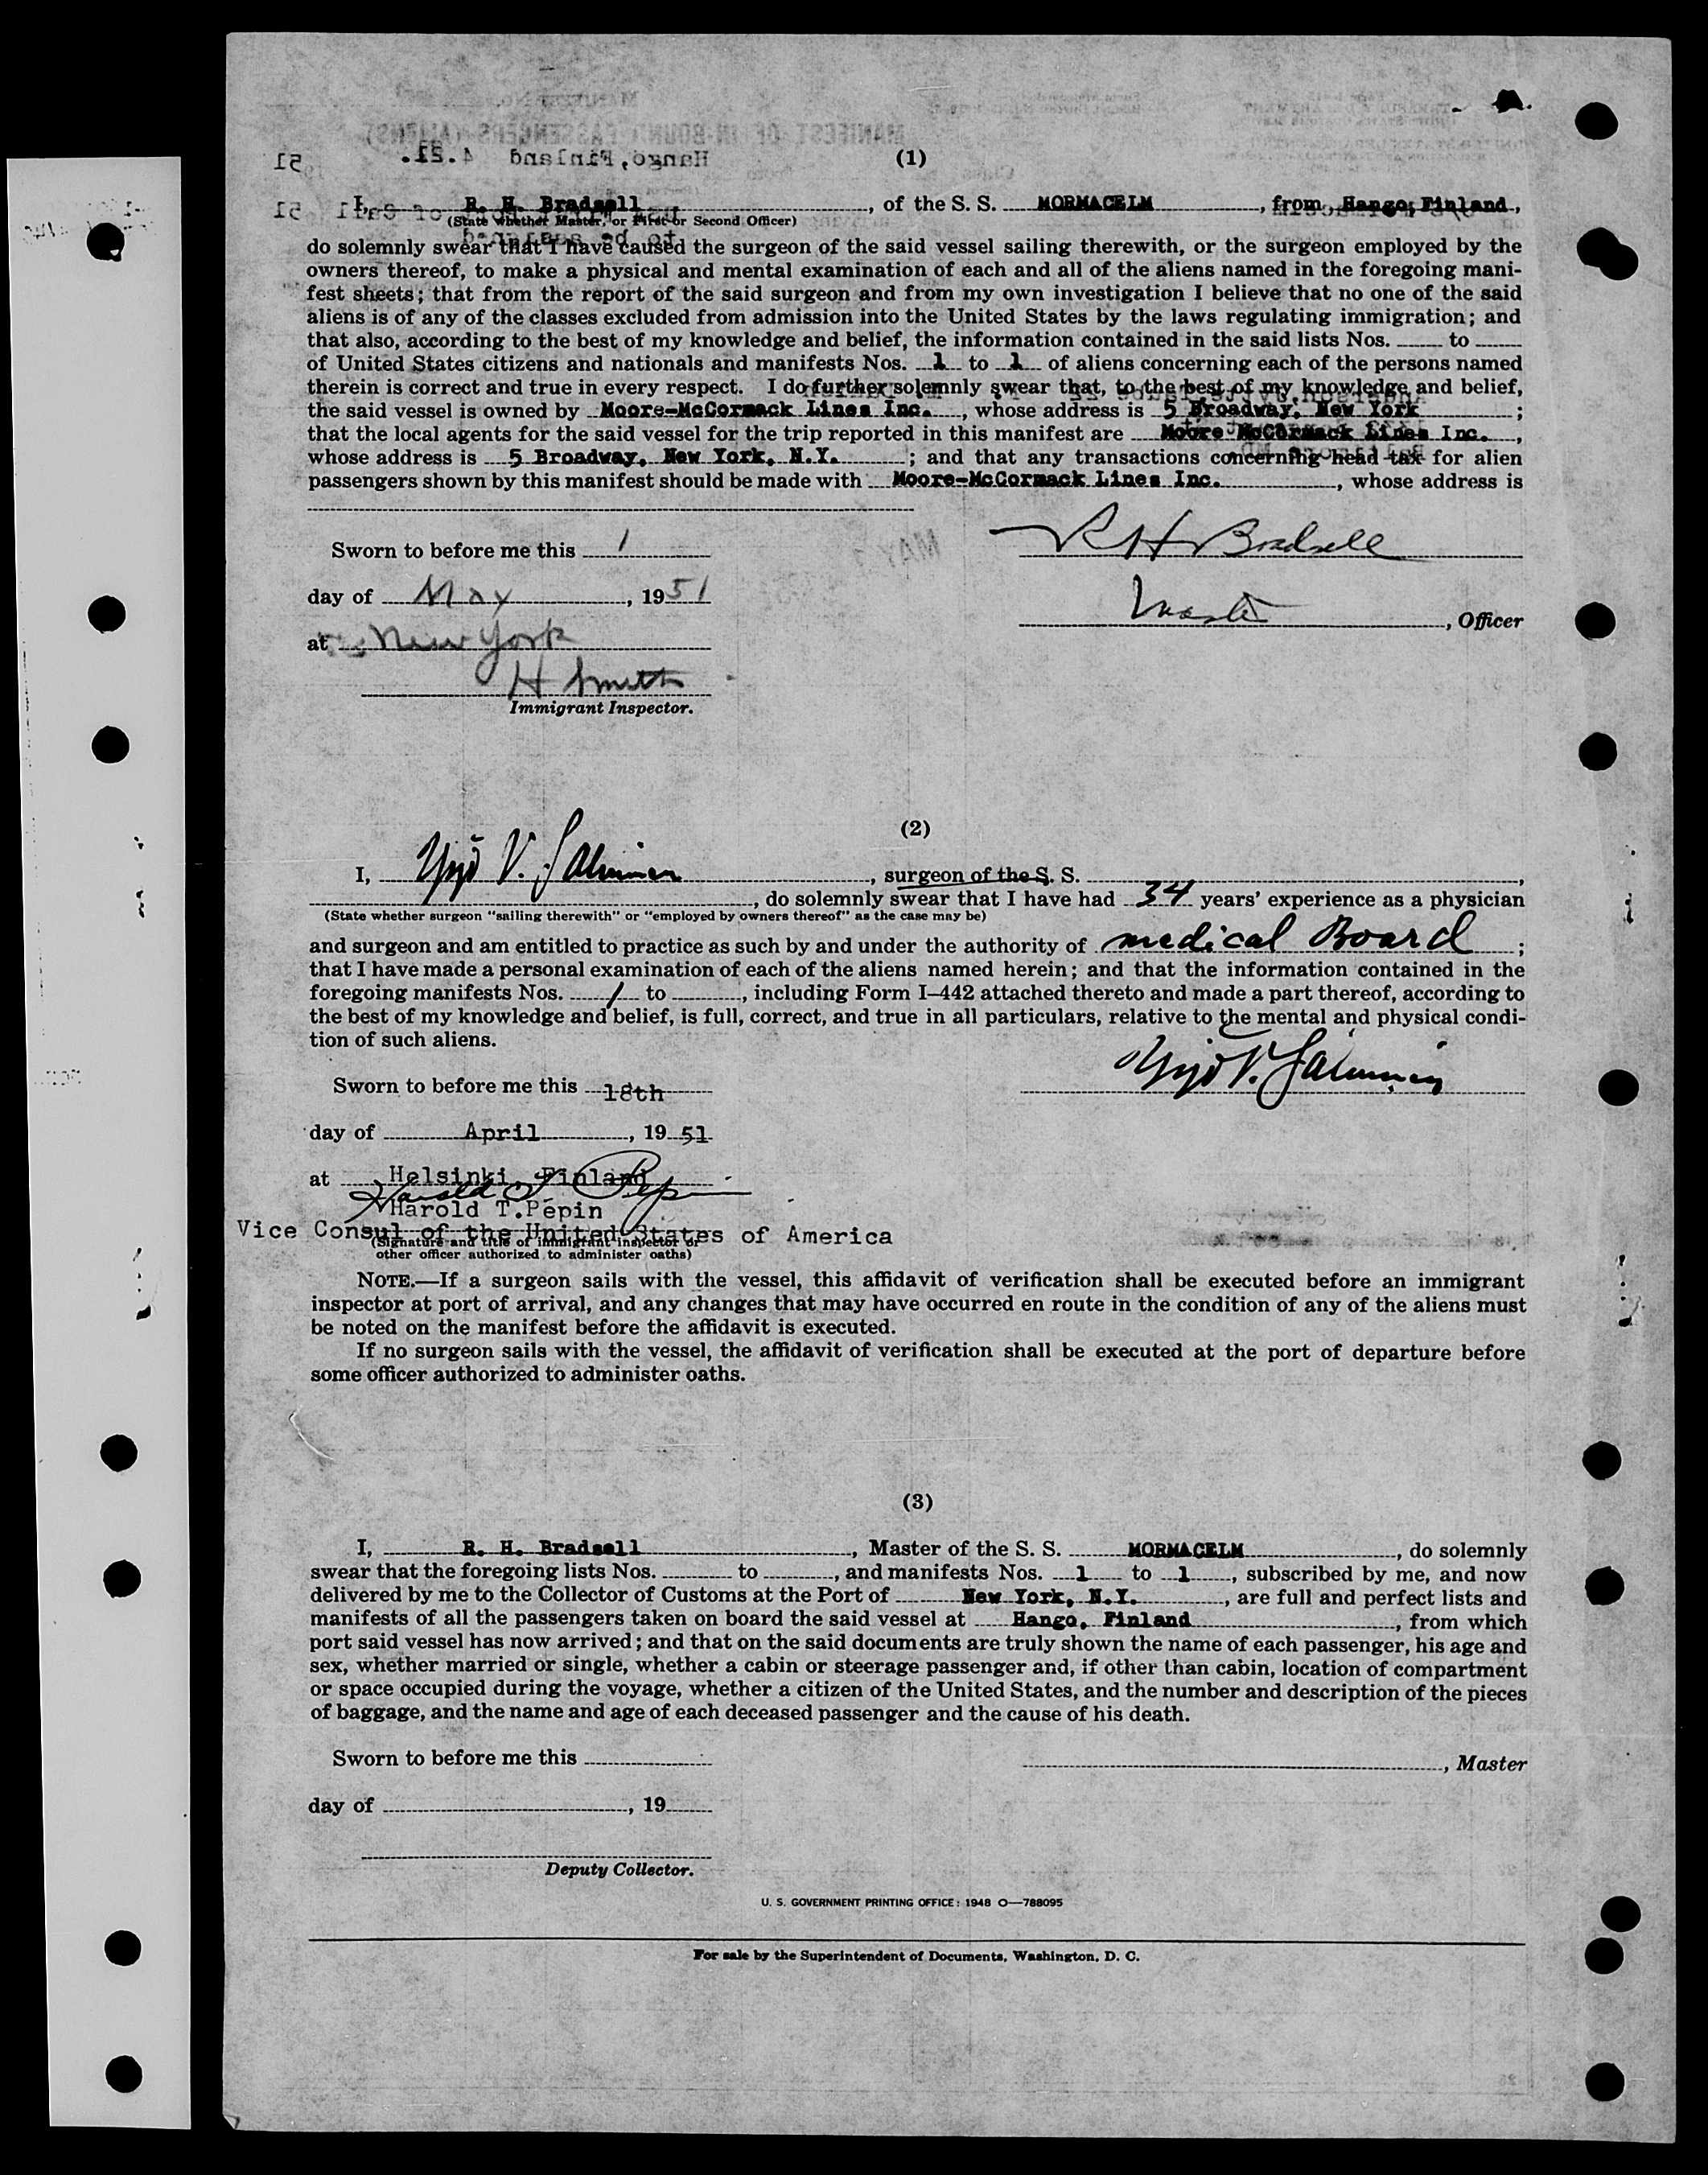 (1)
I, R. H. Bradsell, of the S. S. MORMACELM, from Hango, Finland,
(State whether Master, or First or Second Officer)
do solemnly swear that I have caused the surgeon of the said vessel sailing therewith, or the surgeon employed by the
owners thereof, to make a physical and mental examination of each and all of the aliens named in the foregoing mani-
fest sheets; that from the report of the said surgeon and from my own investigation I believe that no one of the said
aliens is of any of the classes excluded from admission into the United States by the laws regulating immigration; and
that also, according to the best of my knowledge and belief, the information contained in the said lists Nos. ........ to ........
of United States citizens and nationals and manifests Nos. 1 to 1 of aliens concerning each of the persons named
therein is correct and true in every respect. I do further solemnly swear that, to the best of my knowledge and belief,
the said vessel is owned by Moore-McCormack Lines Inc., whose address is 5 Broadway, New York;
that the local agents for the said vessel for the trip reported in this manifest are Moore-McCormack Lines Inc.,
whose address is 5 Broadway, New York, N.Y.; and that any transactions concerning head tax for alien
passengers shown by this manifest should be made with Moore-McCormack Lines Inc., whose address is
Sworn to before me this 1
R H Bradsell
day of May, 1951
Master, Officer
at New York
H Smith
Immigrant Inspector.
(2)
I, Yrjö V. Salminen, surgeon of the S. S.
, do solemnly swear that I have had 34 years' experience as a physician
(State whether surgeon "sailing therewith" or "employed by owners thereof" as the case may be)
and surgeon and am entitled to practice as such by and under the authority of medical Board;
that I have made a personal examination of each of the aliens named herein; and that the information contained in the
foregoing manifests Nos. 1 to ........, including Form I-442 attached thereto and made a part thereof, according to
the best of my knowledge and belief, is full, correct, and true in all particulars, relative to the mental and physical condi-
tion of such aliens.
Yrjö V. Salminen
Sworn to before me this 18th
day of April, 1951
at Helsinki, Finland
Harold T. Pepin
Harold T.Pepin
Vice Consul of the United States of America
(Signature and title of immigrant inspector or
other officer authorized to administer oaths)
NOTE.—If a surgeon sails with the vessel, this affidavit of verification shall be executed before an immigrant
inspector at port of arrival, and any changes that may have occurred en route in the condition of any of the aliens must
be noted on the manifest before the affidavit is executed.
If no surgeon sails with the vessel, the affidavit of verification shall be executed at the port of departure before
some officer authorized to administer oaths.
(3)
I, R. H. Bradsell, Master of the S. S. MORMACELM, do solemnly
swear that the foregoing lists Nos. ........ to ........, and manifests Nos. 1 to 1, subscribed by me, and now
delivered by me to the Collector of Customs at the Port of New York, N.Y., are full and perfect lists and
manifests of all the passengers taken on board the said vessel at Hango, Finland, from which
port said vessel has now arrived; and that on the said documents are truly shown the name of each passenger, his age and
sex, whether married or single, whether a cabin or steerage passenger and, if other than cabin, location of compartment
or space occupied during the voyage, whether a citizen of the United States, and the number and description of the pieces
of baggage, and the name and age of each deceased passenger and the cause of his death.
Sworn to before me this
, Master
day of ........, 19
Deputy Collector.
U. S. GOVERNMENT PRINTING OFFICE: 1948 O—788095
For sale by the Superintendent of Documents, Washington, D. C.